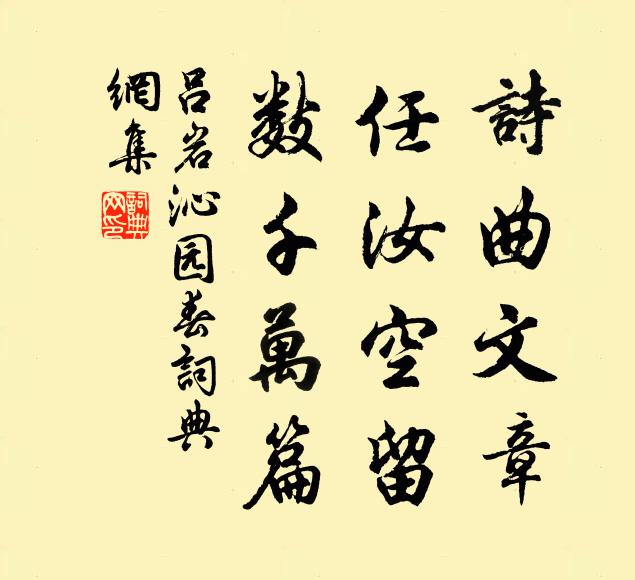 詩曲文章
任汝空留
数千萬篇
呂岩沁园春詞典
網集
詞典
网印